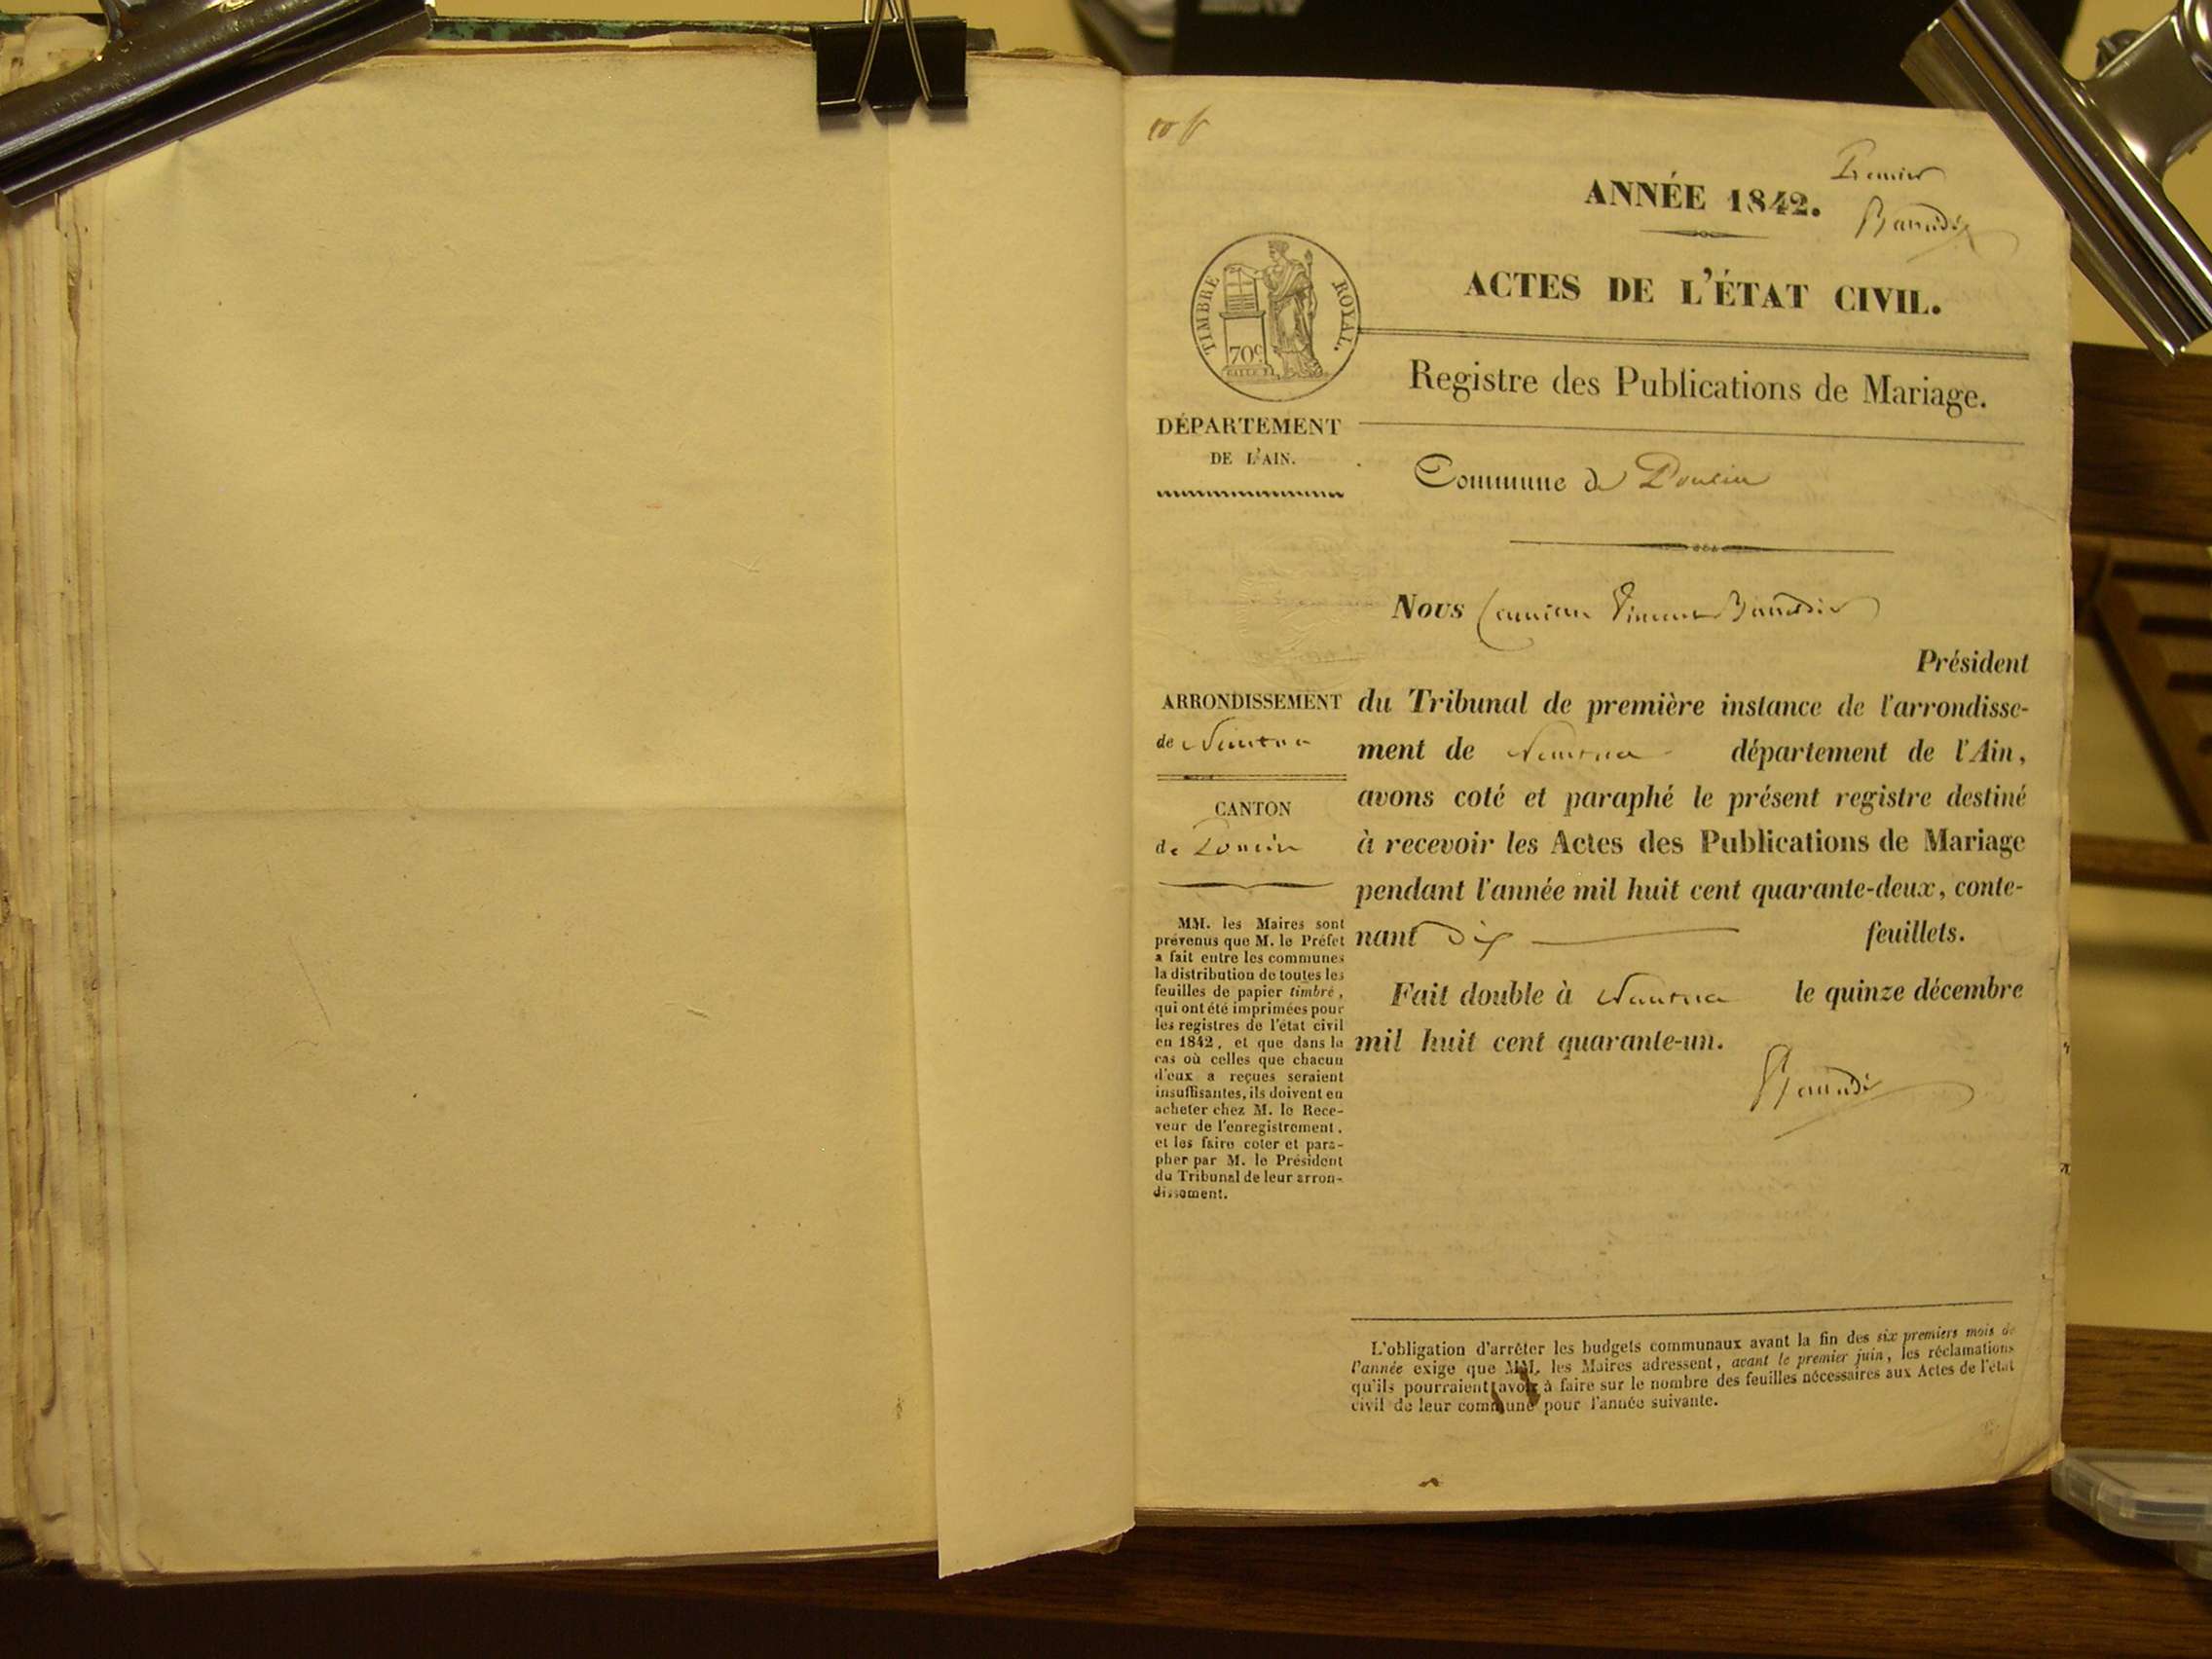 10 f
Premier
ANNÉE 1842.
Baudin
ACTES DE L'ÉTAT CIVIL.
TIMBRE ROYAL.
70c
Registre des Publications de Mariage.
DÉPARTEMENT
DE L'AIN.
Commune de Poncin
Nous Vincent
Président
ARRONDISSEMENT
de Nantua
CANTON
de Poncin
du Tribunal de première instance de l'arrondisse-
ment de Nantua département de l'Ain,
avons coté et paraphé le présent registre destiné
à recevoir les Actes des Publications de Mariage
pendant l'année mil huit cent quarante-deux, conte-
nant dix feuillets.
Fait double à Nantua le quinze décembre
mil huit cent quarante-un.
MM. les Maires sont
prévenus que M. le Préfet
a fait entre les communes
la distribution de toutes les
feuilles de papier timbré,
qui ont été imprimées pour
les registres de l'état civil
en 1842, et que dans le
cas où celles que chacun
d'eux a reçues seraient
insuffisantes, ils doivent en
acheter chez M. le Rece-
veur de l'enregistrement,
et les faire coter et para-
pher par M. le Président
du Tribunal de leur arron-
dissement.
L'obligation d'arrêter les budgets communaux avant la fin des six premiers mois de
l'année exige que MM. les Maires adressent, avant le premier juin, les réclamations
qu'ils pourraient avoir à faire sur le nombre des feuilles nécessaires aux Actes de l'état
civil de leur commune pour l'année suivante.